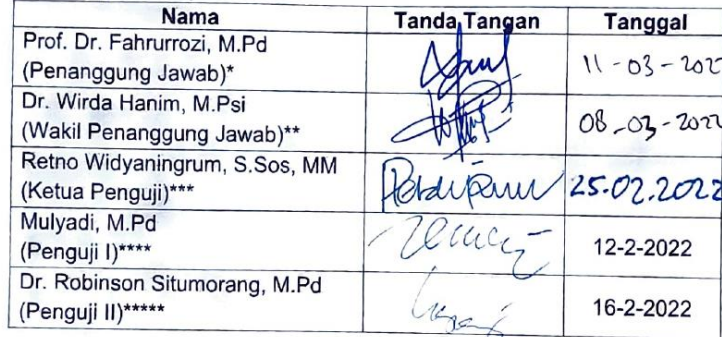 Nama Tanda Tangan Tanggal
Prof. Dr. Fahrurrozi, M.Pd
(Penanggung Jawab)* 11-03-2022
Dr. Wirda Hanim, M.Psi
(Wakil Penanggung Jawab)** 08-03-2022
Retno Widyaningrum, S.Sos, MM
(Ketua Penguji)*** 25.02.2022
Mulyadi, M.Pd
(Penguji I)**** 12-2-2022
Dr. Robinson Situmorang, M.Pd
(Penguji II)***** 16-2-2022